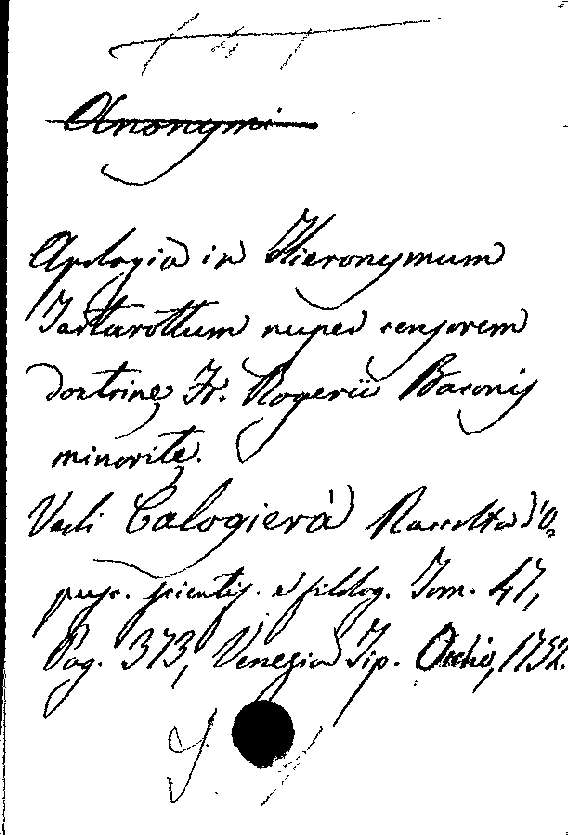 Anonymi
Apologia in Hieronymum
Tartarottum nuper censorem
doctrine Fr. Rogerii Baconis
minorite.
Vedi Calogierà Raccolta d'O-
pusc. scientif. e filolog. Tom. 47,
Pag. 373, Venezia Tip. Occhi, 1752.